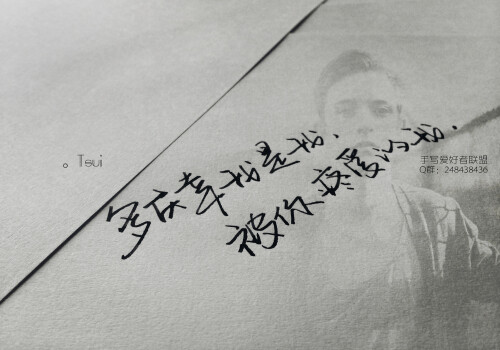 。Tsui
多庆幸我是我.
被你疼爱的我.
手写爱好者联盟
Q群：248438436